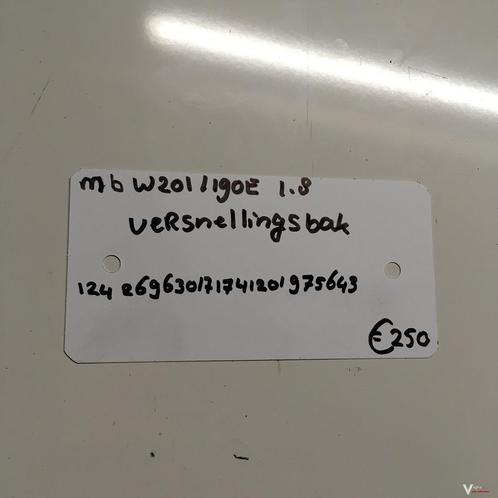 mb W201/190E 1.8
veRsnellingsbak
124 2696301717741201975643
€250